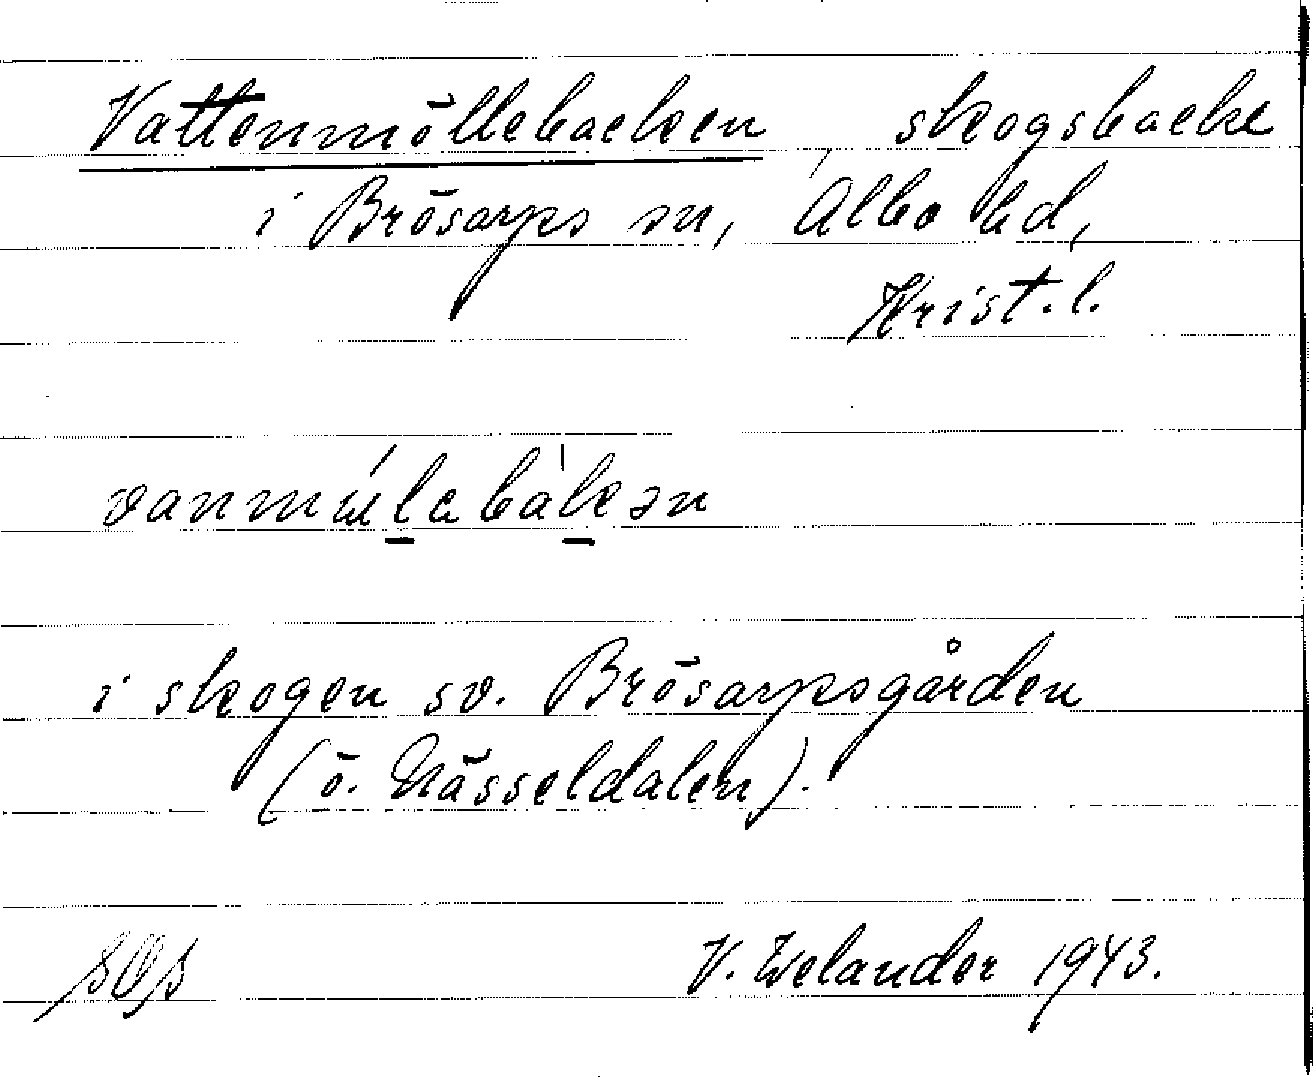 Vattenmöllebacken, skogsbacke
i Brösarps sn, Albo hd,
Krist. l.
i skogen sv. Brösarpsgården
(ö. Nässeldalen).
V. Welander 1943.